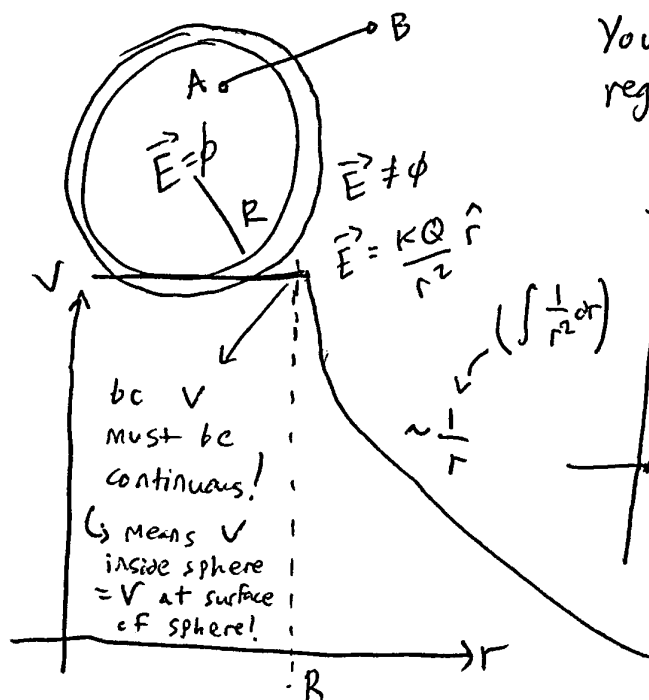 A
B
You
reg
E⃗ = ϕ
R
E⃗ ≠ ϕ
E⃗ = KQ/r² r̂
V
(∫ 1/r² dr)
~ 1/r
bc V
must be
continuous!
↳ means V
inside sphere
= V at surface
of sphere!
r
R